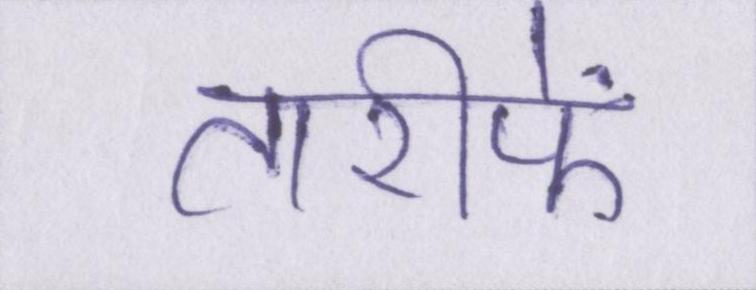 तारीफें